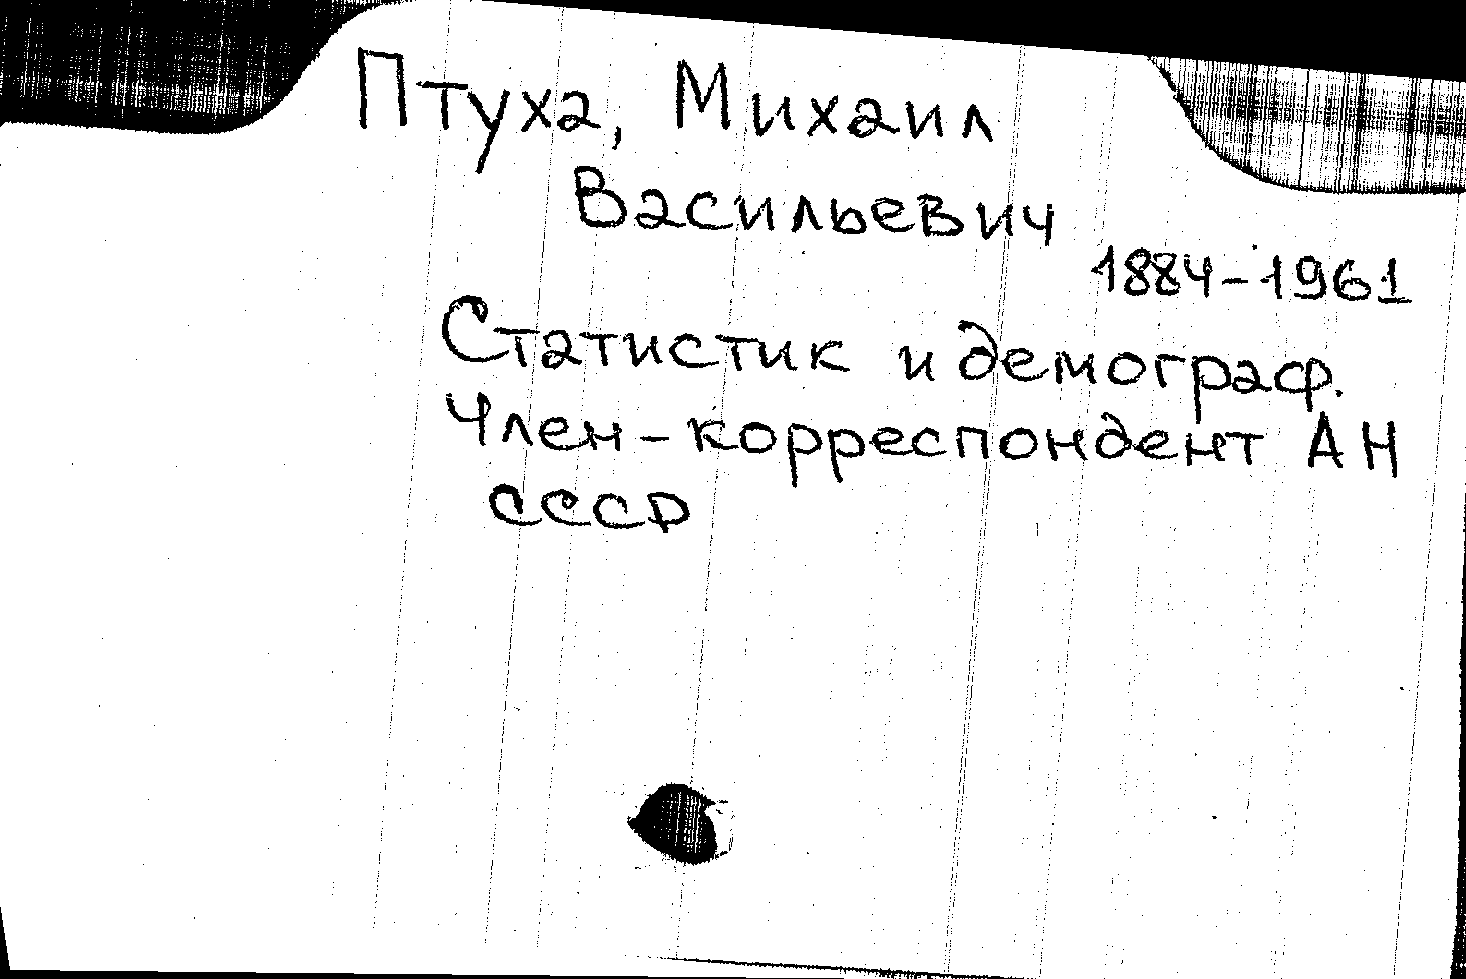 Птуха, Михаил
Васильевич
1884-1961
Статистик и демограф.
Член-корреспондент АН
СССР